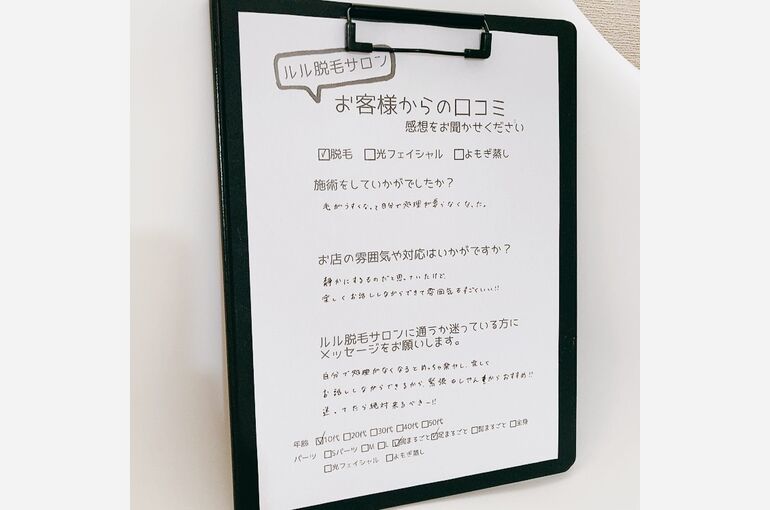 ルル脱毛サロン
お客様からの口コミ
感想をお聞かせください
☑脱毛 □光フェイシャル □よもぎ蒸し
施術をしていかがでしたか？
毛がうすくなって自分で処理が要らなくなった。
お店の雰囲気や対応はいかがですか？
静かにするものだと思っていたけど、
楽しくお話ししながらできて雰囲気もすごくいい!!
ルル脱毛サロンに通うか迷っている方に
メッセージをお願いします。
自分で処理がなくなるとめっちゃ楽やし、楽しく
お話ししながらできるから、緊張もしやん
からおすすめ!!
迷ってたら絶対来るべきー!!
年齢 ☑10代 □20代 □30代 □40代 □50代
パーツ □Sパーツ □M □L ☑腕まるごと ☑足まるごと □顔まるごと □全身
□光フェイシャル □よもぎ蒸し